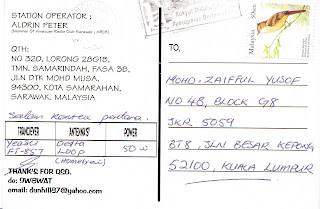 STATION OPERATOR :
ALDRIN PETER
(Member Of American Radio Club Sarawak (ARCS)
QTH:
NO 320, LORONG 28G1B,
TMN. SAMARINDAH, FASA 3B,
JLN DTK MOHD MUSA,
94300, KOTA SAMARAHAN,
SARAWAK, MALAYSIA
Salam kontek pertama.
TRANCIEVER ANTENNA'S POWER
Yeasu Delta 50 W
FT-857 LOOP
(Homebrew)
THANK'S FOR QSO.
de: 9W8WAT
email: dunhill197@yahoo.com
Malaysia
30 sen
TO,
MOHD. ZAIFFUL YUSOF
NO 4B, BLOCK G8
JKR 5059
BT8, JLN BESAR KEPONG
52100, KUALA LUMPUR